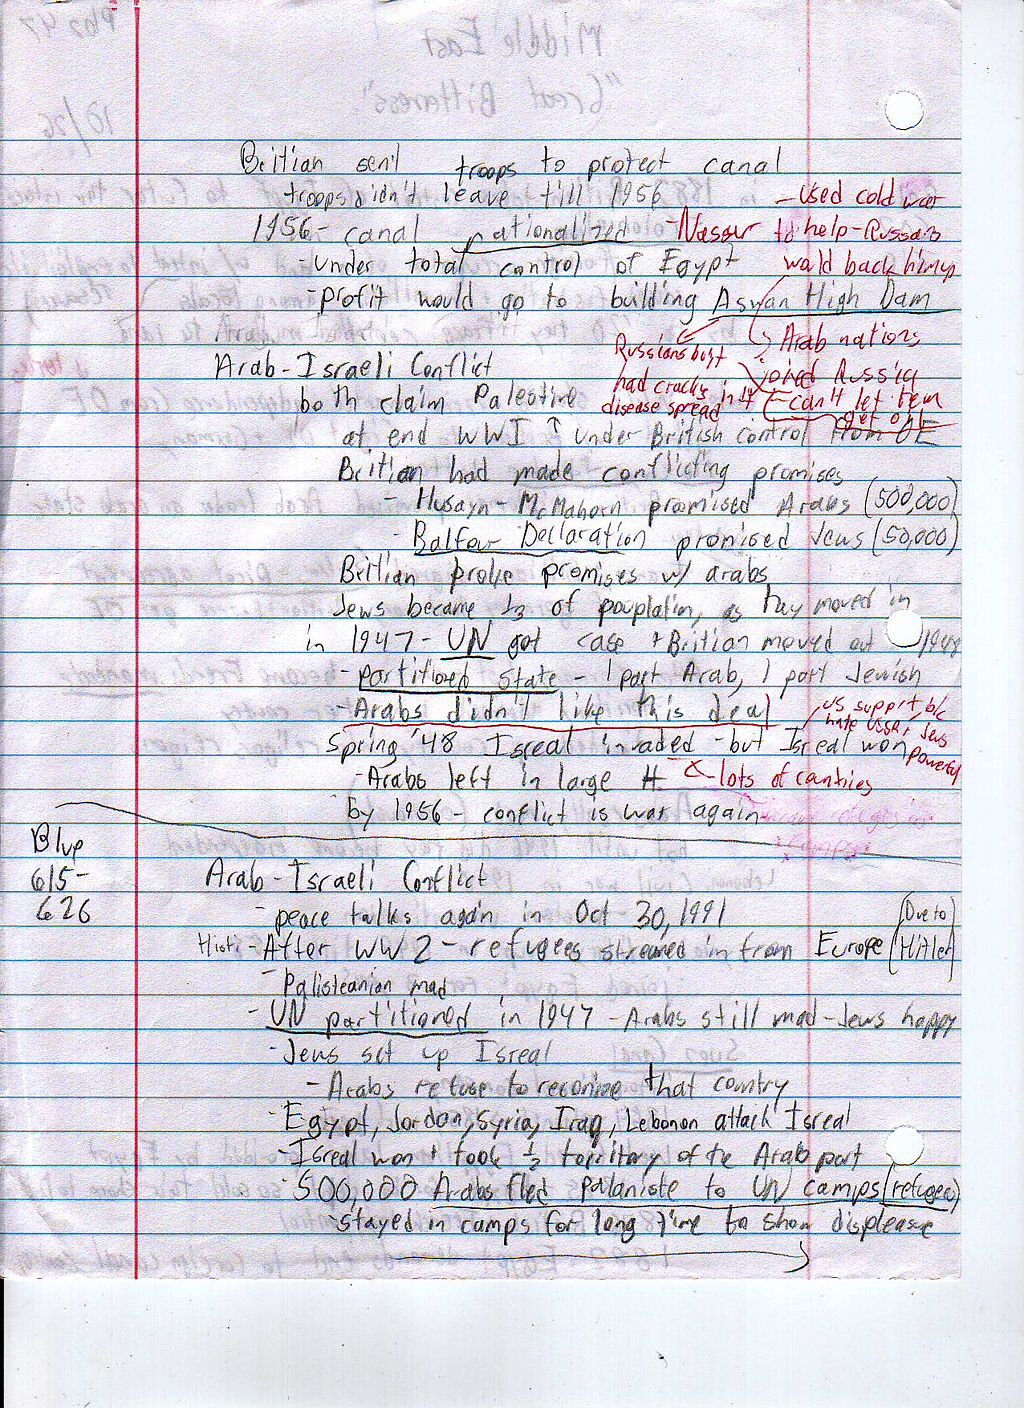 Britian sent troops to protect canal
troops didn't leave till 1956
- used cold war
1956 - canal nationalized - Nasser to help - Russians
- under total control of Egypt
would back him up
- profit would go to building Aswan High Dam
Russians built
had cracks in it
disease spread
Arab nations
joined Russia
can't let them
get out
Arab - Israeli Conflict
both claim Palestine
at end WWI ↑ under British control from OE
Britian had made conflicting promises
- Husayn - McMahorn promised Arabs (500,000)
- Balfour Declaration promised Jews (50,000)
Britian broke promises w/ arabs
Jews became 1/3 of pouplation, as they moved in
in 1947 - UN got case + Britian moved out 1948
- partitioned state - 1 part Arab, 1 part Jewish
- Arabs didn't like this deal
US support b/c
hate USSR, Jews
powerful
Spring '48 Isreal invaded - but Isreal won
- Arabs left in large # - lots of countries
by 1956 - conflict is war again
Blue
615-
626
Arab - Israeli Conflict
- peace talks again in Oct - 30, 1991
Hist: - After WW2 - refugees streamed in from Europe (Due to Hitler)
- Palisteanian mad
- UN partitioned in 1947 - Arabs still mad - Jews happy
- Jews set up Isreal
- Arabs refuse to reconize that country
- Egypt, Jordan, Syria, Iraq, Lebonon attack Isreal
- Isreal won + took 1/2 territory of the Arab part
- 500,000 Arabs fled Palaniste to UN camps (refugee)
stayed in camps for long time to show displease